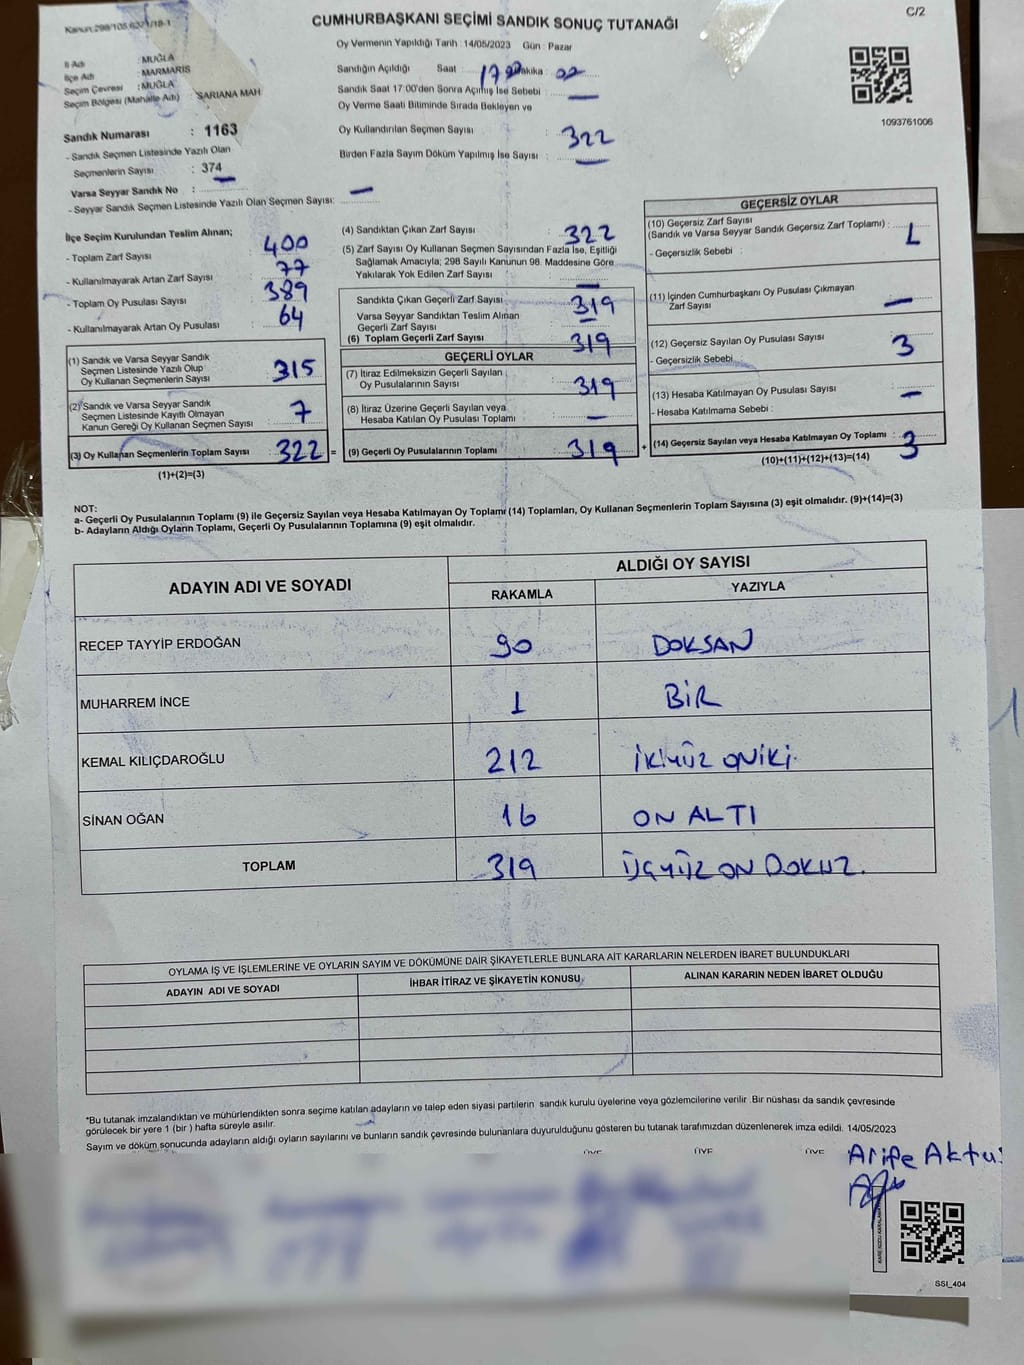 Kanun:298/105.6271/18-1
CUMHURBAŞKANI SEÇİMİ SANDIK SONUÇ TUTANAĞI
C/2
İl Adı : MUĞLA
İlçe Adı : MARMARİS
Seçim Çevresi : MUĞLA
Seçim Bölgesi (Mahalle Adı) : SARIANA MAH
Sandık Numarası : 1163
- Sandık Seçmen Listesinde Yazılı Olan
Seçmenlerin Sayısı : 374
Varsa Seyyar Sandık No : —
- Seyyar Sandık Seçmen Listesinde Yazılı Olan Seçmen Sayısı: —
Oy Vermenin Yapıldığı Tarih : 14/05/2023 Gün : Pazar
Sandığın Açıldığı Saat : 17 Dakika : 00
Sandık Saat 17:00'den Sonra Açılmış İse Sebebi : —
Oy Verme Saati Bitiminde Sırada Bekleyen ve
Oy Kullandırılan Seçmen Sayısı : 322
Birden Fazla Sayım Döküm Yapılmış İse Sayısı : —
1093761006
İlçe Seçim Kurulundan Teslim Alınan;
- Toplam Zarf Sayısı : 400
- Kullanılmayarak Artan Zarf Sayısı : 77
- Toplam Oy Pusulası Sayısı : 389
- Kullanılmayarak Artan Oy Pusulası : 64
(1) Sandık ve Varsa Seyyar Sandık
Seçmen Listesinde Yazılı Olup
Oy Kullanan Seçmenlerin Sayısı : 315
(2) Sandık ve Varsa Seyyar Sandık
Seçmen Listesinde Kayıtlı Olmayan
Kanun Gereği Oy Kullanan Seçmen Sayısı : 7
(3) Oy Kullanan Seçmenlerin Toplam Sayısı : 322 =
(1)+(2)=(3)
(4) Sandıktan Çıkan Zarf Sayısı : 322
(5) Zarf Sayısı Oy Kullanan Seçmen Sayısından Fazla İse, Eşitliği
Sağlamak Amacıyla; 298 Sayılı Kanunun 98. Maddesine Göre
Yakılarak Yok Edilen Zarf Sayısı : —
Sandıkta Çıkan Geçerli Zarf Sayısı : 319
Varsa Seyyar Sandıktan Teslim Alınan
Geçerli Zarf Sayısı : —
(6) Toplam Geçerli Zarf Sayısı : 319
GEÇERLİ OYLAR
(7) İtiraz Edilmeksizin Geçerli Sayılan
Oy Pusulalarının Sayısı : 319
(8) İtiraz Üzerine Geçerli Sayılan veya
Hesaba Katılan Oy Pusulası Toplamı : —
(9) Geçerli Oy Pusulalarının Toplamı : 319 +
GEÇERSİZ OYLAR
(10) Geçersiz Zarf Sayısı
(Sandık ve Varsa Seyyar Sandık Geçersiz Zarf Toplamı) :
- Geçersizlik Sebebi :
(11) İçinden Cumhurbaşkanı Oy Pusulası Çıkmayan
Zarf Sayısı : —
(12) Geçersiz Sayılan Oy Pusulası Sayısı : 3
- Geçersizlik Sebebi
(13) Hesaba Katılmayan Oy Pusulası Sayısı : —
- Hesaba Katılmama Sebebi :
(14) Geçersiz Sayılan veya Hesaba Katılmayan Oy Toplamı : 3
(10)+(11)+(12)+(13)=(14)
NOT:
a- Geçerli Oy Pusulalarının Toplamı (9) ile Geçersiz Sayılan veya Hesaba Katılmayan Oy Toplamı (14) Toplamları, Oy Kullanan Seçmenlerin Toplam Sayısına (3) eşit olmalıdır. (9)+(14)=(3)
b- Adayların Aldığı Oyların Toplamı, Geçerli Oy Pusulalarının Toplamına (9) eşit olmalıdır.
ADAYIN ADI VE SOYADI
ALDIĞI OY SAYISI
RAKAMLA YAZIYLA
RECEP TAYYİP ERDOĞAN 90 DOKSAN
MUHARREM İNCE 1 BİR
KEMAL KILIÇDAROĞLU 212 İKİYÜZ ONİKİ
SİNAN OĞAN 16 ON ALTI
TOPLAM 319 ÜÇYÜZ ON DOKUZ.
OYLAMA İŞ VE İŞLEMLERİNE VE OYLARIN SAYIM VE DÖKÜMÜNE DAİR ŞİKAYETLERLE BUNLARA AİT KARARLARIN NELERDEN İBARET BULUNDUKLARI
ADAYIN ADI VE SOYADI İHBAR İTİRAZ VE ŞİKAYETİN KONUSU ALINAN KARARIN NEDEN İBARET OLDUĞU
*Bu tutanak imzalandıktan ve mühürlendikten sonra seçime katılan adayların ve talep eden siyasi partilerin sandık kurulu üyelerine veya gözlemcilerine verilir .Bir nüshası da sandık çevresinde
görülecek bir yere 1 (bir ) hafta süreyle asılır.
Sayım ve döküm sonucunda adayların aldığı oyların sayılarını ve bunların sandık çevresinde bulunanlara duyurulduğunu gösteren bu tutanak tarafımızdan düzenlenerek imza edildi. 14/05/2023
ÜYE ÜYE ÜYE
Arife
SSI_404